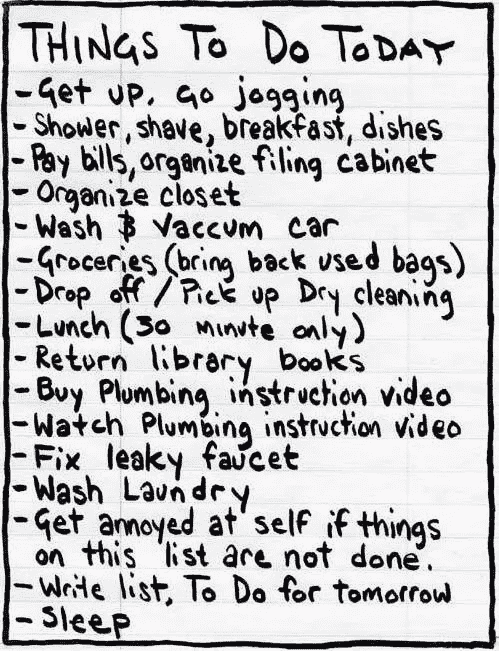 THINGS To Do ToDAY
- Get up. Go jogging
- Shower, shave, breakfast, dishes
- Pay bills, organize filing cabinet
- Organize closet
- Wash & Vaccum car
- Groceries (bring back used bags)
- Drop off / Pick up Dry cleaning
- Lunch (30 minute only)
- Return library books
- Buy Plumbing instruction video
- Watch Plumbing instruction video
- Fix leaky faucet
- Wash Laundry
- Get annoyed at self if things
on this list are not done.
- Write list, To Do for tomorrow
- Sleep